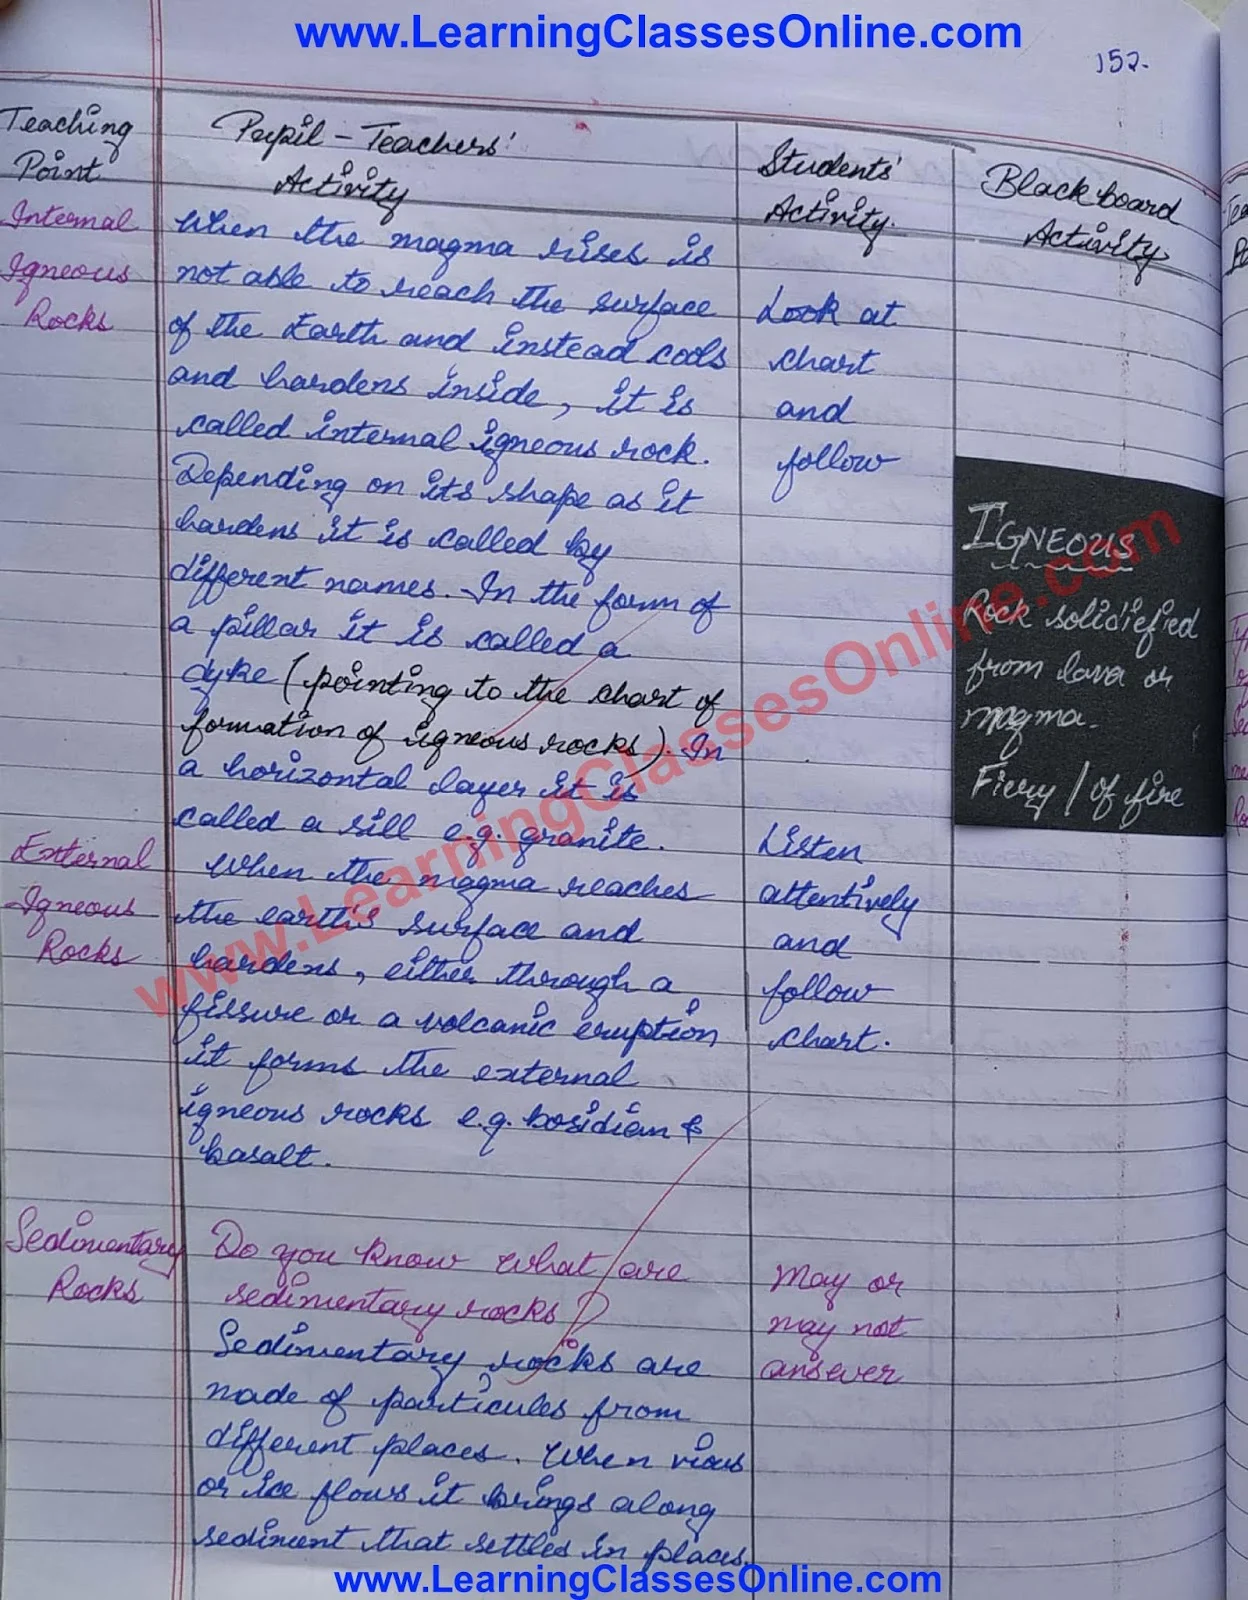 www.LearningClassesOnline.com
152.
Teaching
Point
Pupil-Teachers'
Activity
Students'
Activity.
Blackboard
Activity
Internal
Igneous
Rocks
When the magma rises is
not able to reach the surface
of the Earth and instead cools
and hardens inside, it is
called internal igneous rock.
Depending on its shape as it
hardens it is called by
different names. In the form of
a pillar it is called a
dyke (pointing to the chart of
formation of igneous rocks). In
a horizontal layer it is
called a sill e.g. granite.
Look at
chart
and
follow
IGNEOUS
Rock solidified
from lava or
magma.
Fiery / of fire
External
Igneous
Rocks
When the magma reaches
the earth's surface and
hardens, either through a
fissure or a volcanic eruption
it forms the external
igneous rocks e.g. bosidian &
basalt.
Listen
attentively
and
follow
chart.
Sedimentary
Rocks
Do you know what are
sedimentary rocks?
Sedimentary rocks are
made of particules from
different places. When
or ice flows it brings along
sediment that settles in places.
May or
may not
answer
www.LearningClassesOnline.com
www.LearningClassesOnline.com